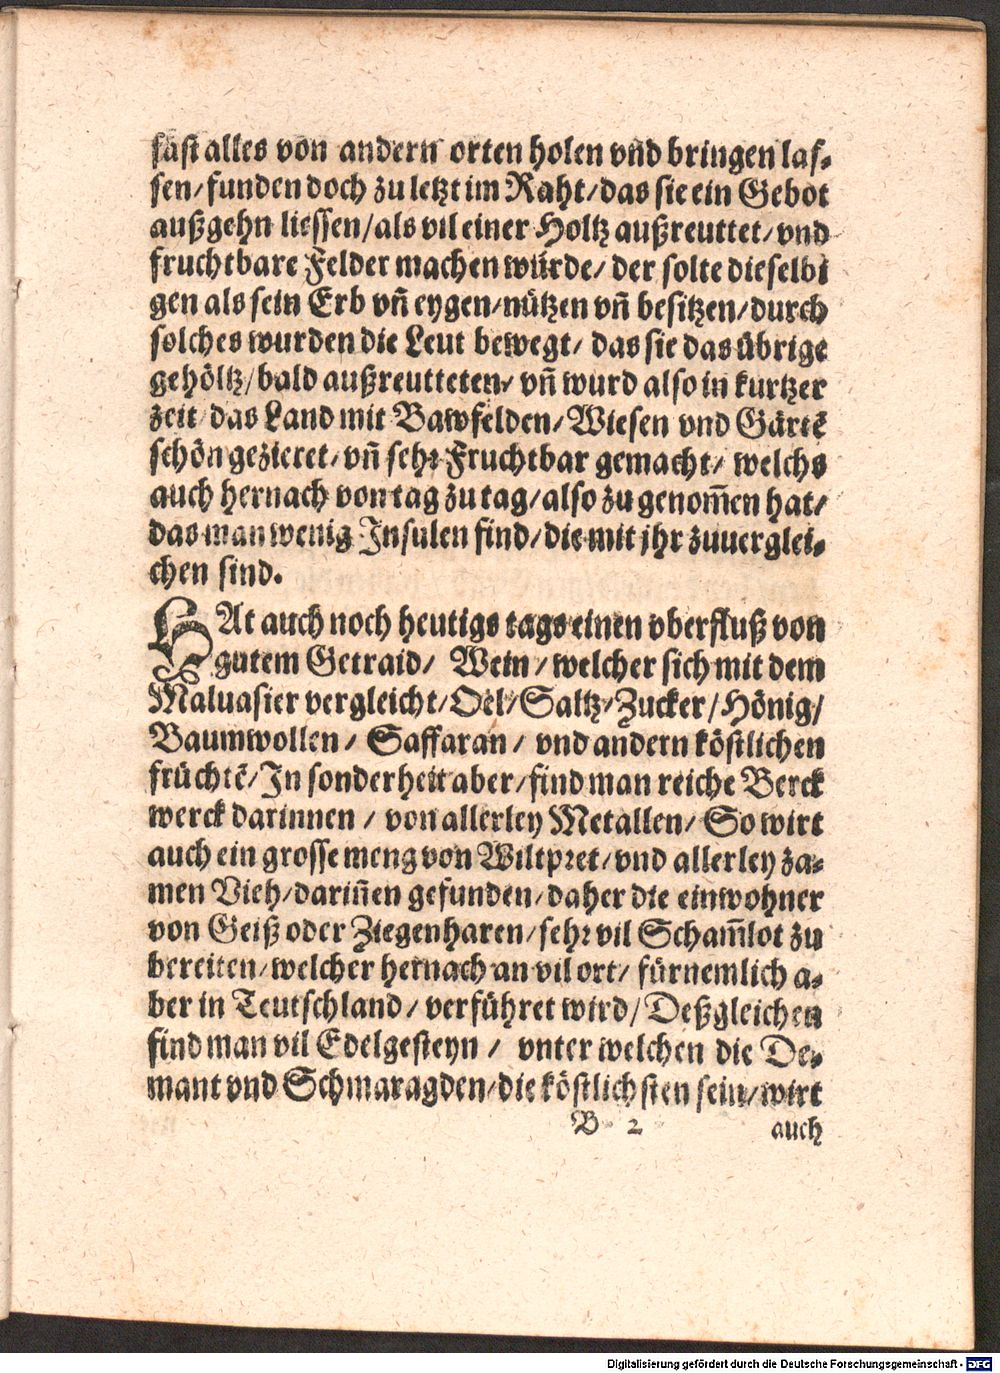 fast alles von andern orten holen vnd bringen las⸗
sen/ funden doch zu letzt im Raht/ das sie ein Gebot
außgehn liessen/ als vil einer Holtz außreuttet/ vnd
fruchtbare Felder machen würde/ der solte dieselbi
gen als sein Erb vñ eygen/ nützen vñ besitzen/ durch
solches wurden die Leut bewegt/ das sie das übrige
gehöltz/ bald außreutteten/ vñ wurd also in kurtzer
zeit das Land mit Bawfelden/ Wiesen vnd Gärtẽ
schön gezieret/ vñ sehr Fruchtbar gemacht/ welchs
auch hernach von tag zu tag/ also zu genom̃en hat/
das man wenig Insulen find/ die mit jhr zuuerglei⸗
chen sind.
HAt auch noch heutigs tags einen vberfluß von
gutem Getraid/ Wein/ welcher sich mit dem
Maluasier vergleicht/ Oel/ Saltz/ Zucker/ Hönig/
Baumwollen/ Saffaran/ vnd andern köstlichen
früchtẽ/ In sonderheit aber/ find man reiche Berck
werck darinnen/ von allerley Metallen/ So wirt
auch ein grosse meng von Wiltpret/ vnd allerley za⸗
men Vieh/ dariñen gefunden/ daher die einwohner
von Geiß oder Ziegenharen/ sehr vil Scham̃lot zu
bereiten/ welcher hernach an vil ort/ fürnemlich a⸗
ber in Teutschland/ verführet wird/ Deßgleichen
find man vil Edelgesteyn/ vnter welchen die De⸗
mant vnd Schmaragden/ die köstlichsten sein/ wirt
B 2 auch
Digitalisierung gefördert durch die Deutsche Forschungsgemeinschaft - DFG